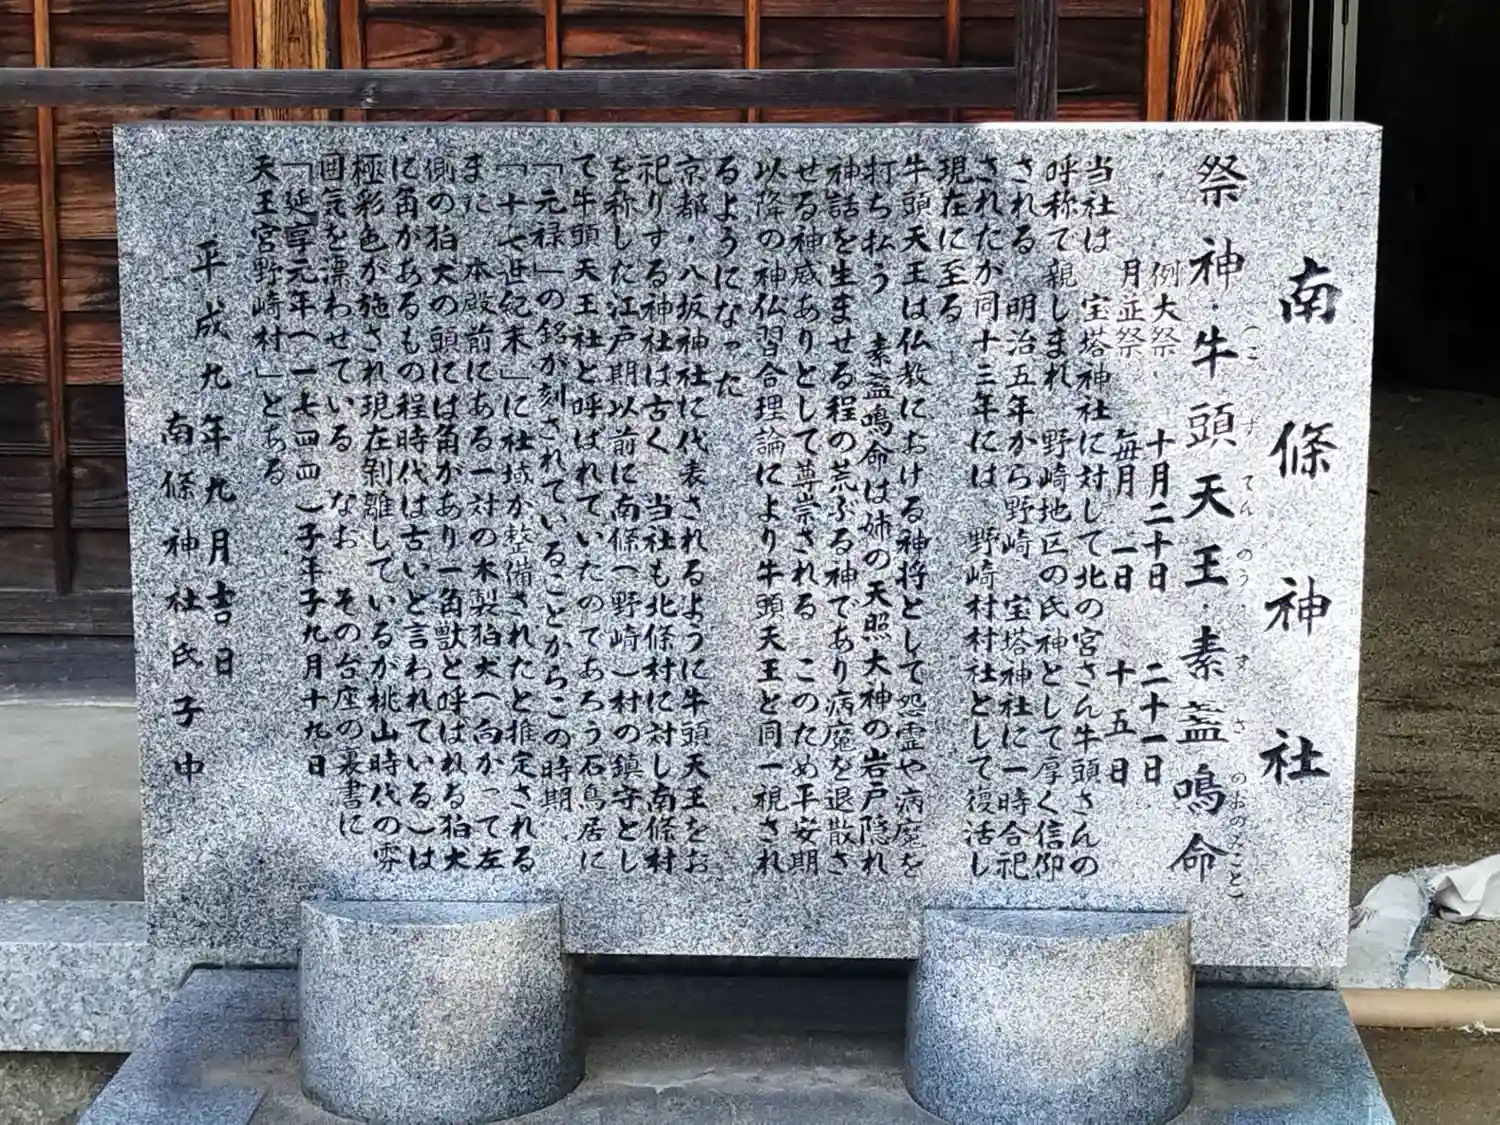 南條神社
祭神・牛頭天王・素盞鳴命
（ごずてんのう・すさのおのみこと
例大祭・十月二十日 二十一日
月正祭・毎月 一日 十五日
当社は 宝塔神社に対して北の宮さん牛頭さんの
呼称で親しまれ 野崎地区の氏神として厚く信仰
される 明治五年から野崎 宝塔神社に一時合祀
されたが同十三年には 野崎村村社として復活し
現在に至る
牛頭天王は仏教における神将として怨霊や病魔を
打ち払う 素盞鳴命は姉の天照大神の岩戸隠れ
神話を生ませる程の荒ぶる神であり病魔を退散さ
せる神威ありとして尊崇される このため平安期
以降の神仏習合理論により牛頭天王と同一視され
るようになった
京都・八坂神社に代表されるように牛頭天王をお
祀りする神社は古く 当社も北條村に対し南條村
を称した江戸期以前に南條（野崎）村の鎮守とし
て牛頭天王社と呼ばれていたのであろう石鳥居に
「元禄」の銘が刻されていることからこの時期
「十七世紀末」に社域が整備されたと推定される
また 本殿前にある一対の木製狛犬（向かって左
側の狛犬の頭には角があり一角獣と呼ばれる狛犬
に角があるもの程時代は古いと言われている）は
極彩色が施され現在剝離しているが桃山時代の雰
囲気を漂わせている なお その台座の裏書に
「延享元年（一七四四）子年子九月十九日
天王宮野崎村」とある
平成九年九月吉日
南條神社氏子中